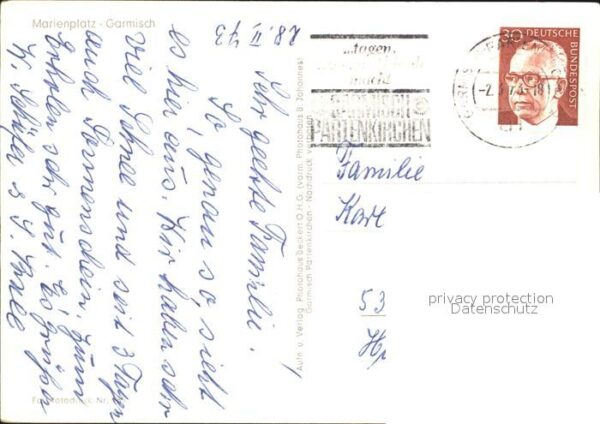 Marienplatz - Garmisch
28. II 73
Sehr geehrte Familie!
So, genau so sieht
es hier aus. Wir haben sehr
viel Schnee und seit 3 Tagen
auch Sonnenschein, zum
Erholen sehr gut. Es grüßen
Fotodruck Nr.
Auto u. Verlag Photohaus Beckert O.H.G. (vorm. Photohaus B. Johannes)
Garmisch Partenkirchen - Nachdruck verboten
...tagen,
macht
GARMISCH
PARTENKIRCHEN
-2.3.73-18
30 DEUTSCHE
BUNDESPOST
Familie
Karl
53
privacy protection
Datenschutz